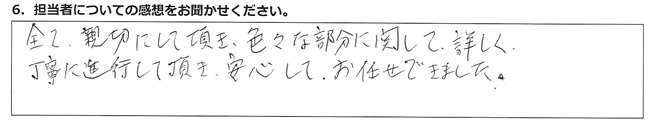 6. 担当者についての感想をお聞かせください。
全て、親切にして頂き、色々な部分に関して、詳しく、
丁寧に進行して頂き、安心して、お任せできました。